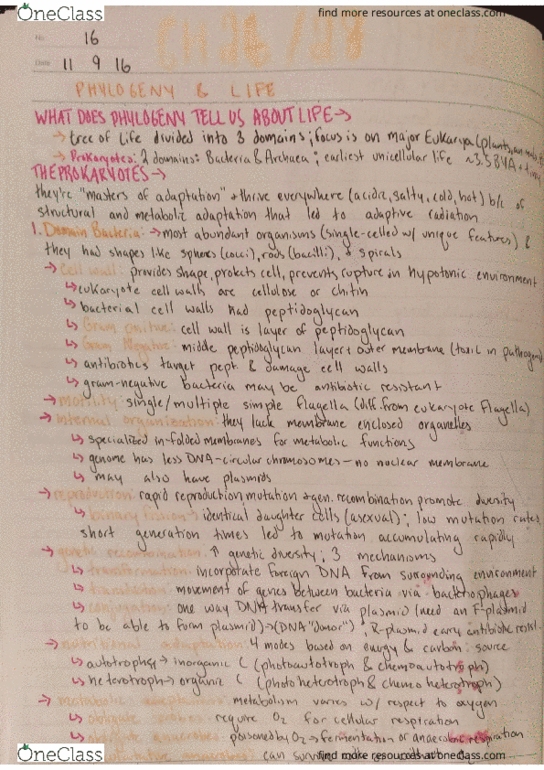 OneClass
find more resources at oneclass.com
No. 16
CH 26/28
Date 11 9 16
PHYLOGENY & LIFE
WHAT DOES PHYLOGENY TELL US ABOUT LIFE→
→ tree of life divided into 3 domains; focus is on major Eukarya (plants,
→ Prokaryotes: 2 domains: Bacteria & Archaea; earliest unicellular life ~3.5BYA
THE PROKARYOTES→
they're "masters of adaptation" + thrive everywhere (acidic, salty, cold, hot) b/c of
structural and metabolic adaptation that led to adaptive radiation
1. Domain Bacteria: → most abundant organisms (single-celled w/ unique features) &
they had shapes like spheres (cocci), rods (bacilli), & spirals
→ cell wall: provides shape, protects cell, prevents rupture in hypotonic environment
↳ eukaryote cell walls are cellulose or chitin
↳ bacterial cell walls had peptidoglycan
↳ Gram positive: cell wall is layer of peptidoglycan
↳ Gram Negative: middle peptidoglycan layer + outer membrane (toxic in pathogen)
↳ antibiotics target pept & damage cell walls
↳ gram-negative bacteria may be antibiotic resistant
→ motility: single/multiple simple flagella (diff. from eukaryote flagella)
→ internal organization: they lack membrane enclosed organelles
↳ specialized in-folded membranes for metabolic functions
↳ genome has less DNA-circular chromosomes - no nuclear membrane
↳ may also have plasmids
→ reproduction: rapid reproduction mutation + gen. recombination promote diversity
↳ binary fission → identical daughter cells (asexual); low mutation rates,
short generation times led to mutation accumulating rapidly
→ genetic recombination: ↑ genetic diversity; 3 mechanisms
↳ transformation: incorporate foreign DNA from surrounding environment
↳ transduction: movement of genes between bacteria via bacteriophages
↳ conjugation: one way DNA transfer via plasmid (need an F-plasmid
to be able to form plasmid)→(DNA "donor"); R-plasmid carry antibiotic resist.
→ nutritional adaptation: 4 modes based on energy & carbon source
↳ autotroph → inorganic C (photoautotroph & chemoautotroph)
↳ heterotroph → organic C (photoheterotroph & chemoheterotroph)
→ metabolic adaptations: metabolism varies w/ respect to oxygen
↳ obligate aerobes: require O₂ for cellular respiration
↳ obligate anaerobes: poisoned by O₂ → fermentation or anaerobic respiration
can
OneClass
find more resources at oneclass.com